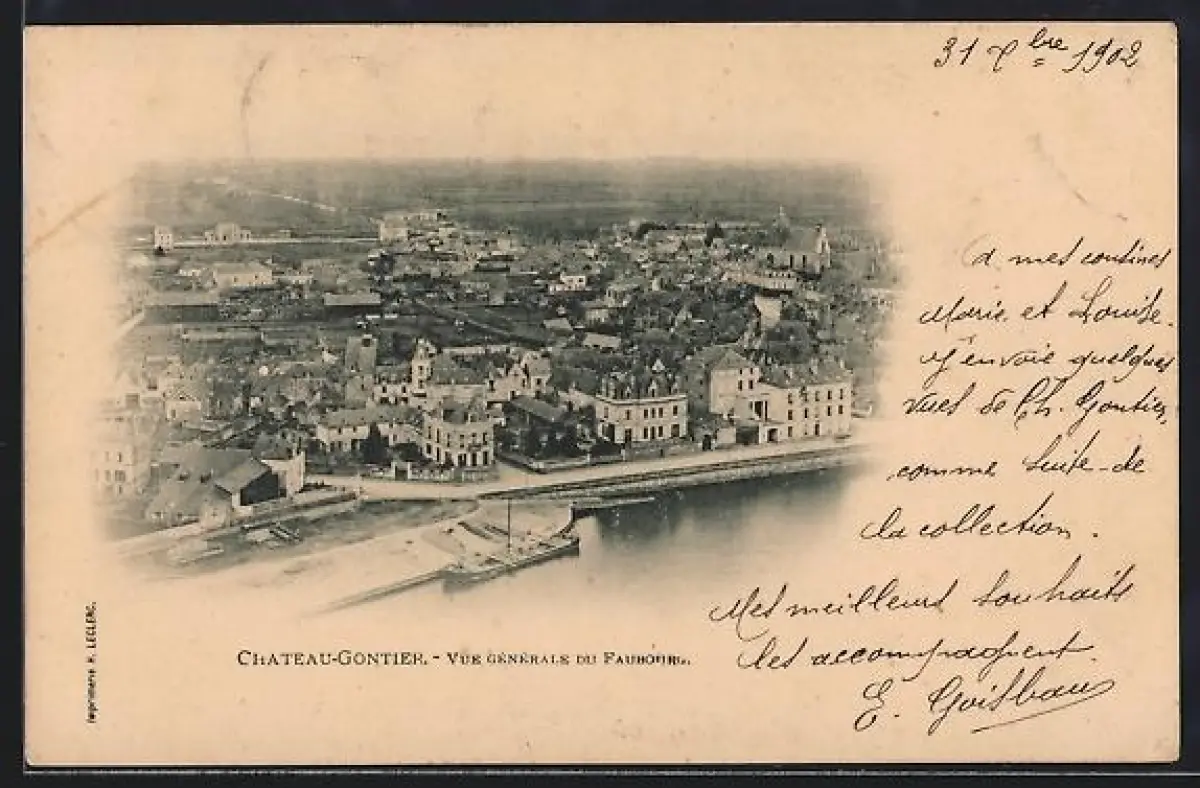 31 Xbre 1902
A mes cousines
Marie et Louise.
J'envoie quelques
vues de Ch. Gontier,
comme suite de
la collection.
Mes meilleurs souhaits
les accompagnent.
CHATEAU-GONTIER. - VUE GÉNÉRALE DU FAUBOURG.
Imprimerie H. LECLERC.